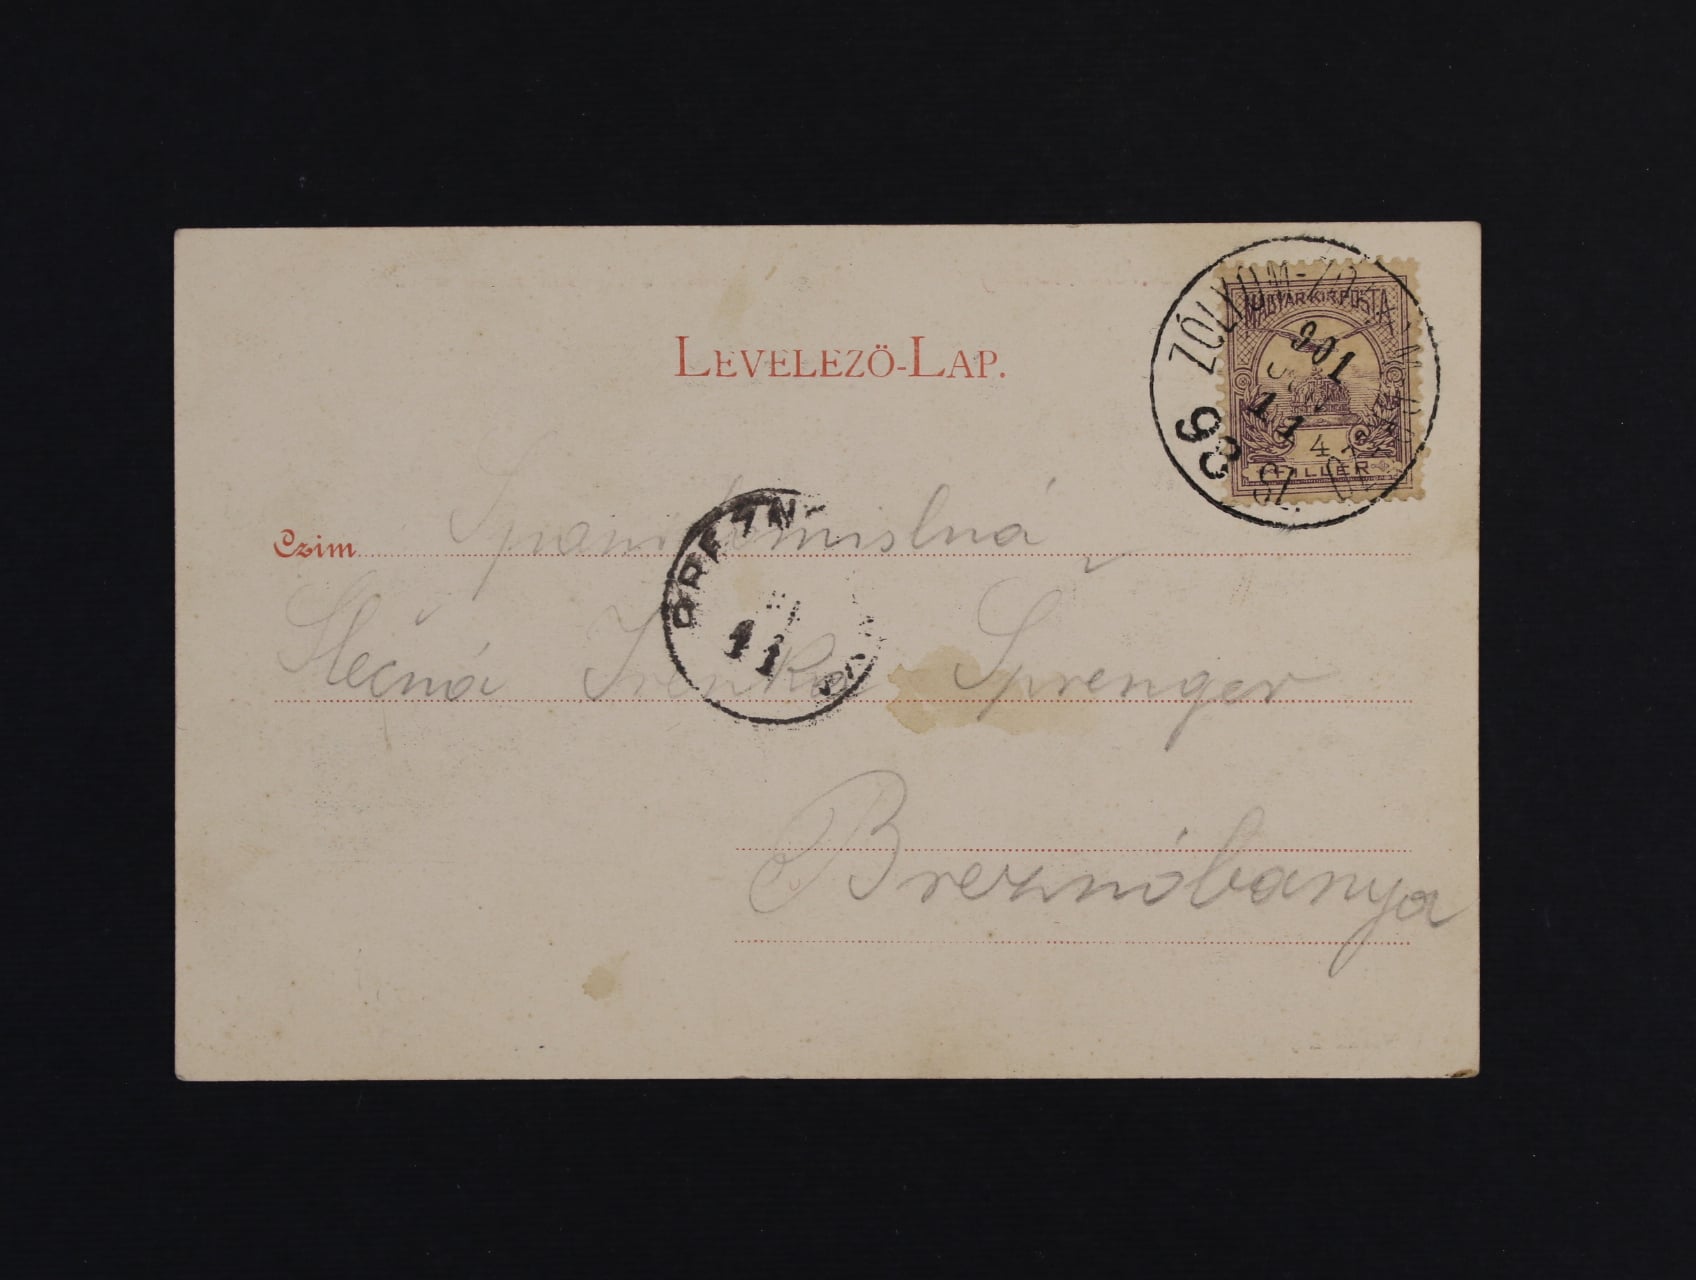 LEVELEZŐ-LAP.
MAGYAR·KIR·POSTA
4
FILLÉR
ZÓLYOM-
901
11
93
SZ.
BREZNÓ
11
Czim Spanilomislná
Slečná Irenka Šprenger
Breznóbanya